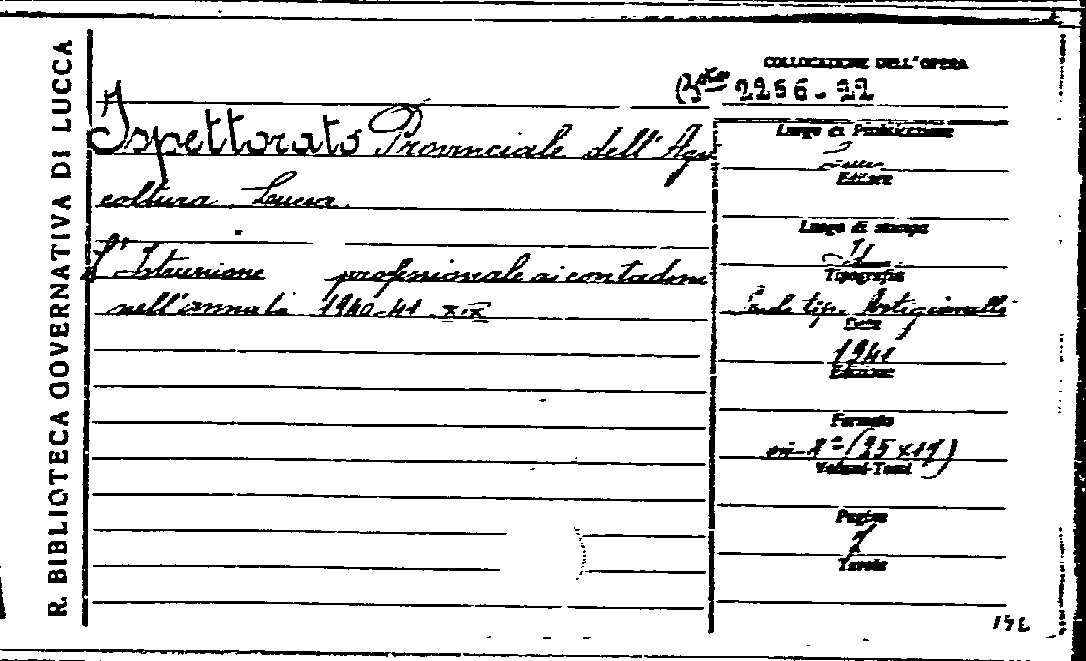 R. BIBLIOTECA GOVERNATIVA DI LUCCA
COLLOCAZIONE DELL'OPERA
2256-22
Ispettorato Provinciale dell'Agri
coltura Lucca.
L'Istruzione professionale ai contadini
nell'annata 1940-41 XIX
Luogo di Pubblicazione
Lucca
Editore
Luogo di stampa
Tipografia
tip. Artigianelli
Data
1941
Edizione
Formato
in-8° (25x19)
Volumi-Tomi
Pagine
7
Tavole